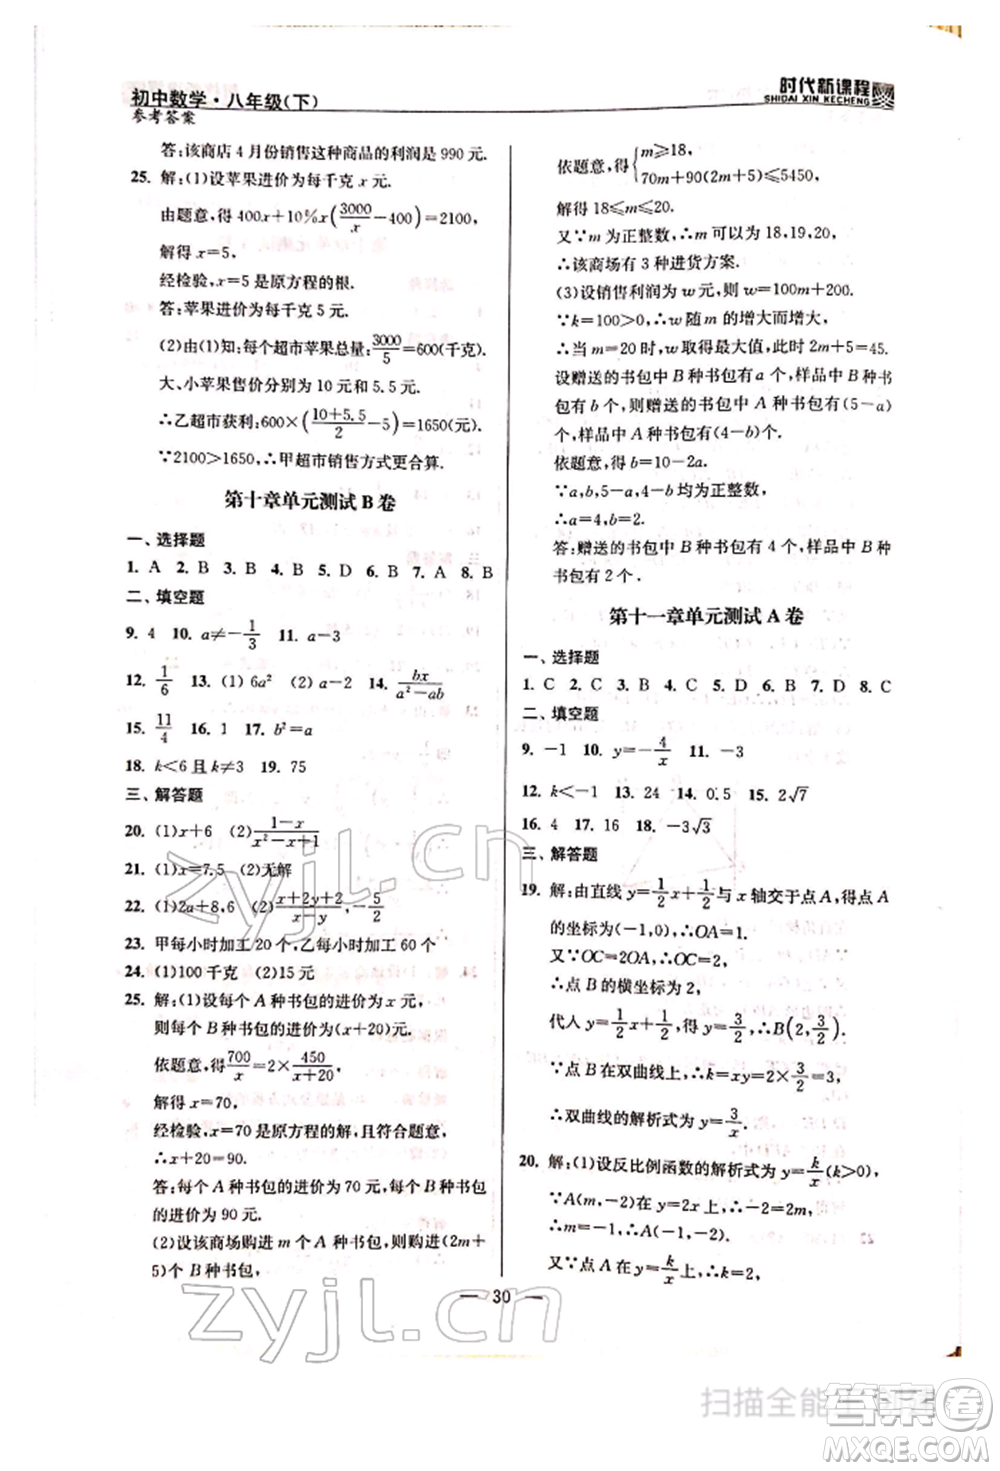 初中数学·八年级(下)
参考答案
时代新课程
SHIDAI XIN KECHENG
答:该商店 4 月份销售这种商品的利润是 990 元.
25. 解:(1)设苹果进价为每千克 x 元.
由题意,得 400x+10%x(3000/x-400)=2100,
解得 x=5,
经检验,x=5 是原方程的根.
答:苹果进价为每千克 5 元.
(2)由(1)知:每个超市苹果总量:3000/5=600(千克).
大、小苹果售价分别为 10 和 5.5 元.
∴乙超市获利:600×((10+5.5)/2-5)=1650(元).
∵2100>1650,∴甲超市销售方式更合算.
第十章单元测试 B 卷
一、选择题
1. A 2. B 3. B 4. B 5. B 6. B 7. A 8. B
二、填空题
9. 4 10. a≠-1/3 11. a-3
12. 1/6 13. (1) 6a² (2) a-2 14. bx/(a²-ab)
15. 11/4 16. 1 17. b²=a
18. k<6 且 k≠3 19. 75
三、解答题
20. (1)x+6 (2)(1-x)/(x²-x+1)
21. (1)x=7.5 (2)无解
22. (1)2a+8,6 (2)(x+2y+2)/(x+y),-5/2
23. 甲每小时加工 20 个,乙每小时加工 60 个
24. (1)100 千克 (2)15 元
25. 解:(1)设每个 A 种书包的进价为 x 元,
则每个 B 种书包的进价为(x+20)元.
依题意,得 700/x=2×450/(x+20),
解得 x=70,
经检验,x=70 是原方程的解,且符合题意,
∴x+20=90.
答:每个 A 种书包的进价为 70 元,每个 B 种书包
的进价为 90 元.
(2)设该商场购进 m 个 A 种书包,则购进(2m+
5)个 B 种书包,
依题意,得{m≥18, 70m+90(2m+5)≤5450,
解得 18≤m≤20.
又∵m 为正整数,∴m 可以为 18,19,20,
∴该商场有 3 种进货方案.
(3)设销售利润为 w 元,则 w=100m+450.
∵k=100>0,∴w 随 m 的增大而增大,
∴当 m=20 时,w 取得最大值,此时 2m+5=45.
设赠送的书包中 B 种书包有 a 个,样品中 B 种书
包有 b 个,则赠送的书包中 A 种书包有(5-a)
个,样品中 A 种书包有(4-b)个.
依题意,得 b=10-2a.
∵a,b,5-a,4-b 均为正整数,
∴a=4,b=2.
答:赠送的书包中 B 种书包有 4 个,样品中 B 种书
包有 2 个.
第十一章单元测试 A 卷
一、选择题
1. C 2. C 3. B 4. C 5. D 6. B 7. D 8. C
二、填空题
9. -1 10. y=-4/x 11. -3
12. k<-1 13. 24 14. 0.5 15. 2√7
16. 4 17. 16 18. -3√3
三、解答题
19. 解:由直线 y=1/2x+1/2与 x 轴交于点 A,得点 A
的坐标为(-1,0),∴OA=1.
又∵OC=2OA,∴OC=2,
∴点 B 的横坐标为 2,
代入 y=1/2x+1/2,得 y=3/2,∴B(2,3/2).
∵点 B 在双曲线上,∴k=xy=2×3/2=3,
∴双曲线的解析式为 y=3/x.
20. 解:(1)设反比例函数的解析式为 y=k/x(k>0),
∵A(m,-2)在 y=2x 上,∴-2=2m,
∴m=-1,∴A(-1,-2).
又∵点 A 在 y=k/x上,∴k=2,
30
zyjl.cn
zyjl.cn
扫描全能王 创建
答案卷
MXQE.COM